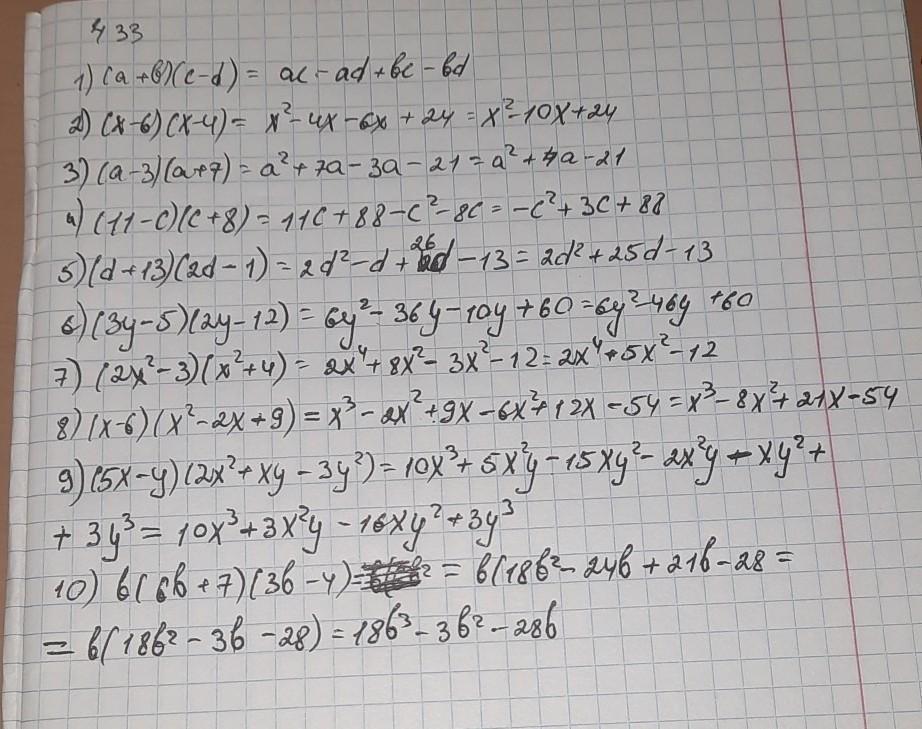 433
1) (a+b)(c-d) = ac - ad + bc - bd
2) (x-6)(x-4) = x² - 4x - 6x + 24 = x² - 10x + 24
3) (a-3)(a+7) = a² + 7a - 3a - 21 = a² + 4a - 21
4) (11-c)(c+8) = 11c + 88 - c² - 8c = -c² + 3c + 88
5) (d+13)(2d-1) = 2d² - d + 26d - 13 = 2d² + 25d - 13
6) (3y-5)(2y-12) = 6y² - 36y - 10y + 60 = 6y² - 46y + 60
7) (2x²-3)(x²+4) = 2x⁴ + 8x² - 3x² - 12 = 2x⁴ + 5x² - 12
8) (x-6)(x²-2x+9) = x³ - 2x² + 9x - 6x² + 12x - 54 = x³ - 8x² + 21x - 54
9) (5x-y)(2x²+xy-3y²) = 10x³ + 5x²y - 15xy² - 2x²y - xy² +
+ 3y³ = 10x³ + 3x²y - 16xy² + 3y³
10) b(6b+7)(3b-4) = = b(18b² - 24b + 21b - 28 =
= b(18b² - 3b - 28) = 18b³ - 3b² - 28b